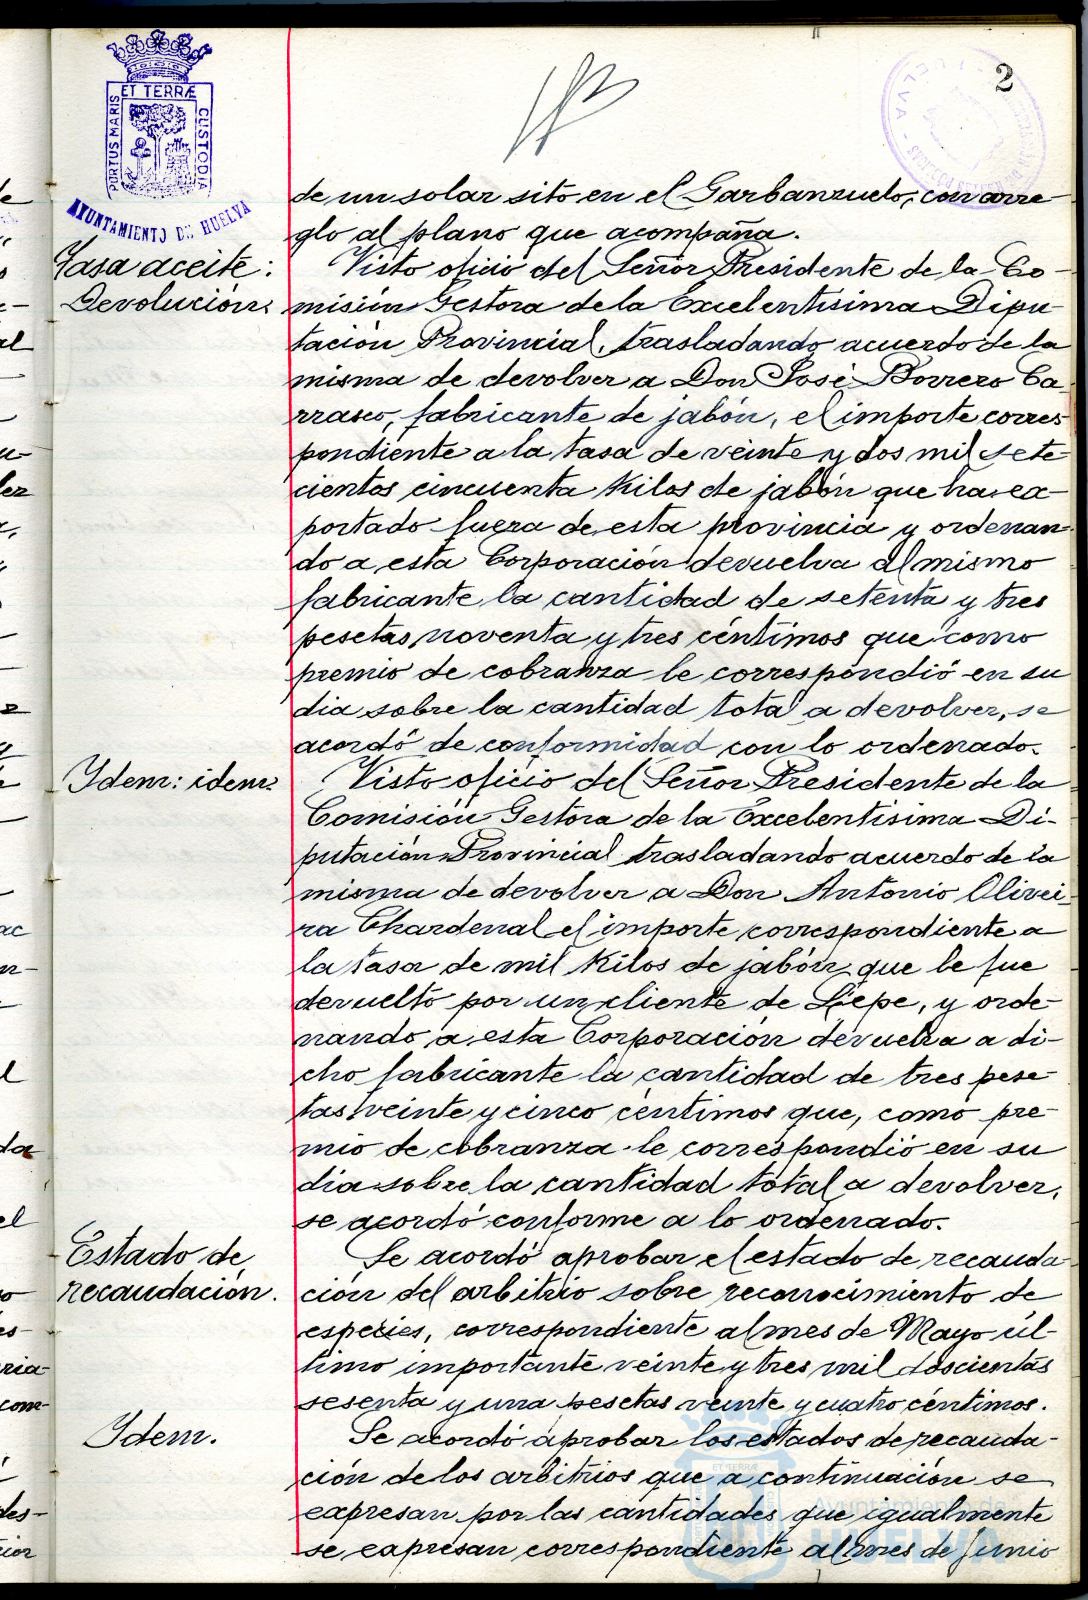 2
ET TERRÆ
PORTUS MARIS
CUSTODIA
AYUNTAMIENTO DE HUELVA
de un solar sito en el Garbanzuelo, con arre
glo al plano que acompaña.
Tasa aceite:
Devolución.
Visto oficio del Señor Presidente de la Co-
misión Gestora de la Excelentísima Dipu
tación Provincial, trasladando acuerdo de la
misma de devolver a Don José Borrero Ca
rrasco, fabricante de jabón, el importe corres
pondiente a la tasa de veinte y dos mil sete
cientos cincuenta kilos de jabón que ha ex-
portado fuera de esta provincia y ordenan-
do a esta Corporación devuelva al mismo
fabricante la cantidad de setenta y tres
pesetas noventa y tres céntimos que como
premio de cobranza le correspondió en su
dia sobre la cantidad total a devolver, se
acordó de conformidad con lo ordenado.
Idem: idem.
Visto oficio del Señor Presidente de la
Comisión Gestora de la Excelentísima Di-
putación Provincial trasladando acuerdo de la
misma de devolver a Don Antonio Olivei-
ra Chardenal el importe correspondiente a
la tasa de mil kilos de jabón que le fue
devuelto por un cliente de Lepe, y orde-
nando a esta Corporación devuelva a di-
cho fabricante la cantidad de tres pese-
tas veinte y cinco céntimos que, como pre-
mio de cobranza le correspondió en su
dia sobre la cantidad total a devolver,
se acordó conforme a lo ordenado.
Estado de
recaudación.
Se acordó aprobar el estado de recauda-
ción del arbitrio sobre reconocimiento de
especies, correspondiente al mes de Mayo úl-
timo importante veinte y tres mil doscientas
sesenta y una pesetas veinte y cuatro céntimos.
Idem.
Se acordó aprobar los estados de recauda-
ción de los arbitrios que a continuación se
expresan por las cantidades que igualmente
se expresan correspondiente al mes de Junio
Ayuntamiento de
HUELVA